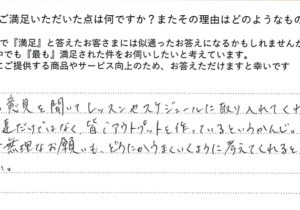 ご満足いただいた点は何ですか?またその理由はどのようなもの
で『満足』と答えたお客さまには似通ったお答えになるかもしれませんが
中でも『最も』満足された件をお伺いしたいと考えています。
ご提供する商品やサービス向上のため、お答えただけますと幸いです
意見を聞いてレッスンやスケジュールに取り入れてくれ
だけではなく、皆でアウトプットを作っているというかんじ。
無理なお願いも、どうにかうまくいくように考えてくれると
。